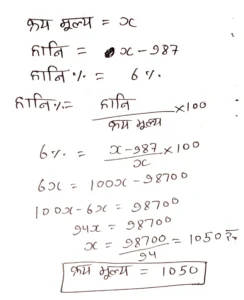 क्रय मूल्य = x
हानि = x - 987
हानि % = 6 %.
हानि % = हानि / क्रय मूल्य × 100
6 %. = x - 987 / x × 100
6x = 100x - 98700
100x - 6x = 98700
94x = 98700
x = 98700 / 94 = 1050 रु.
क्रय मूल्य = 1050